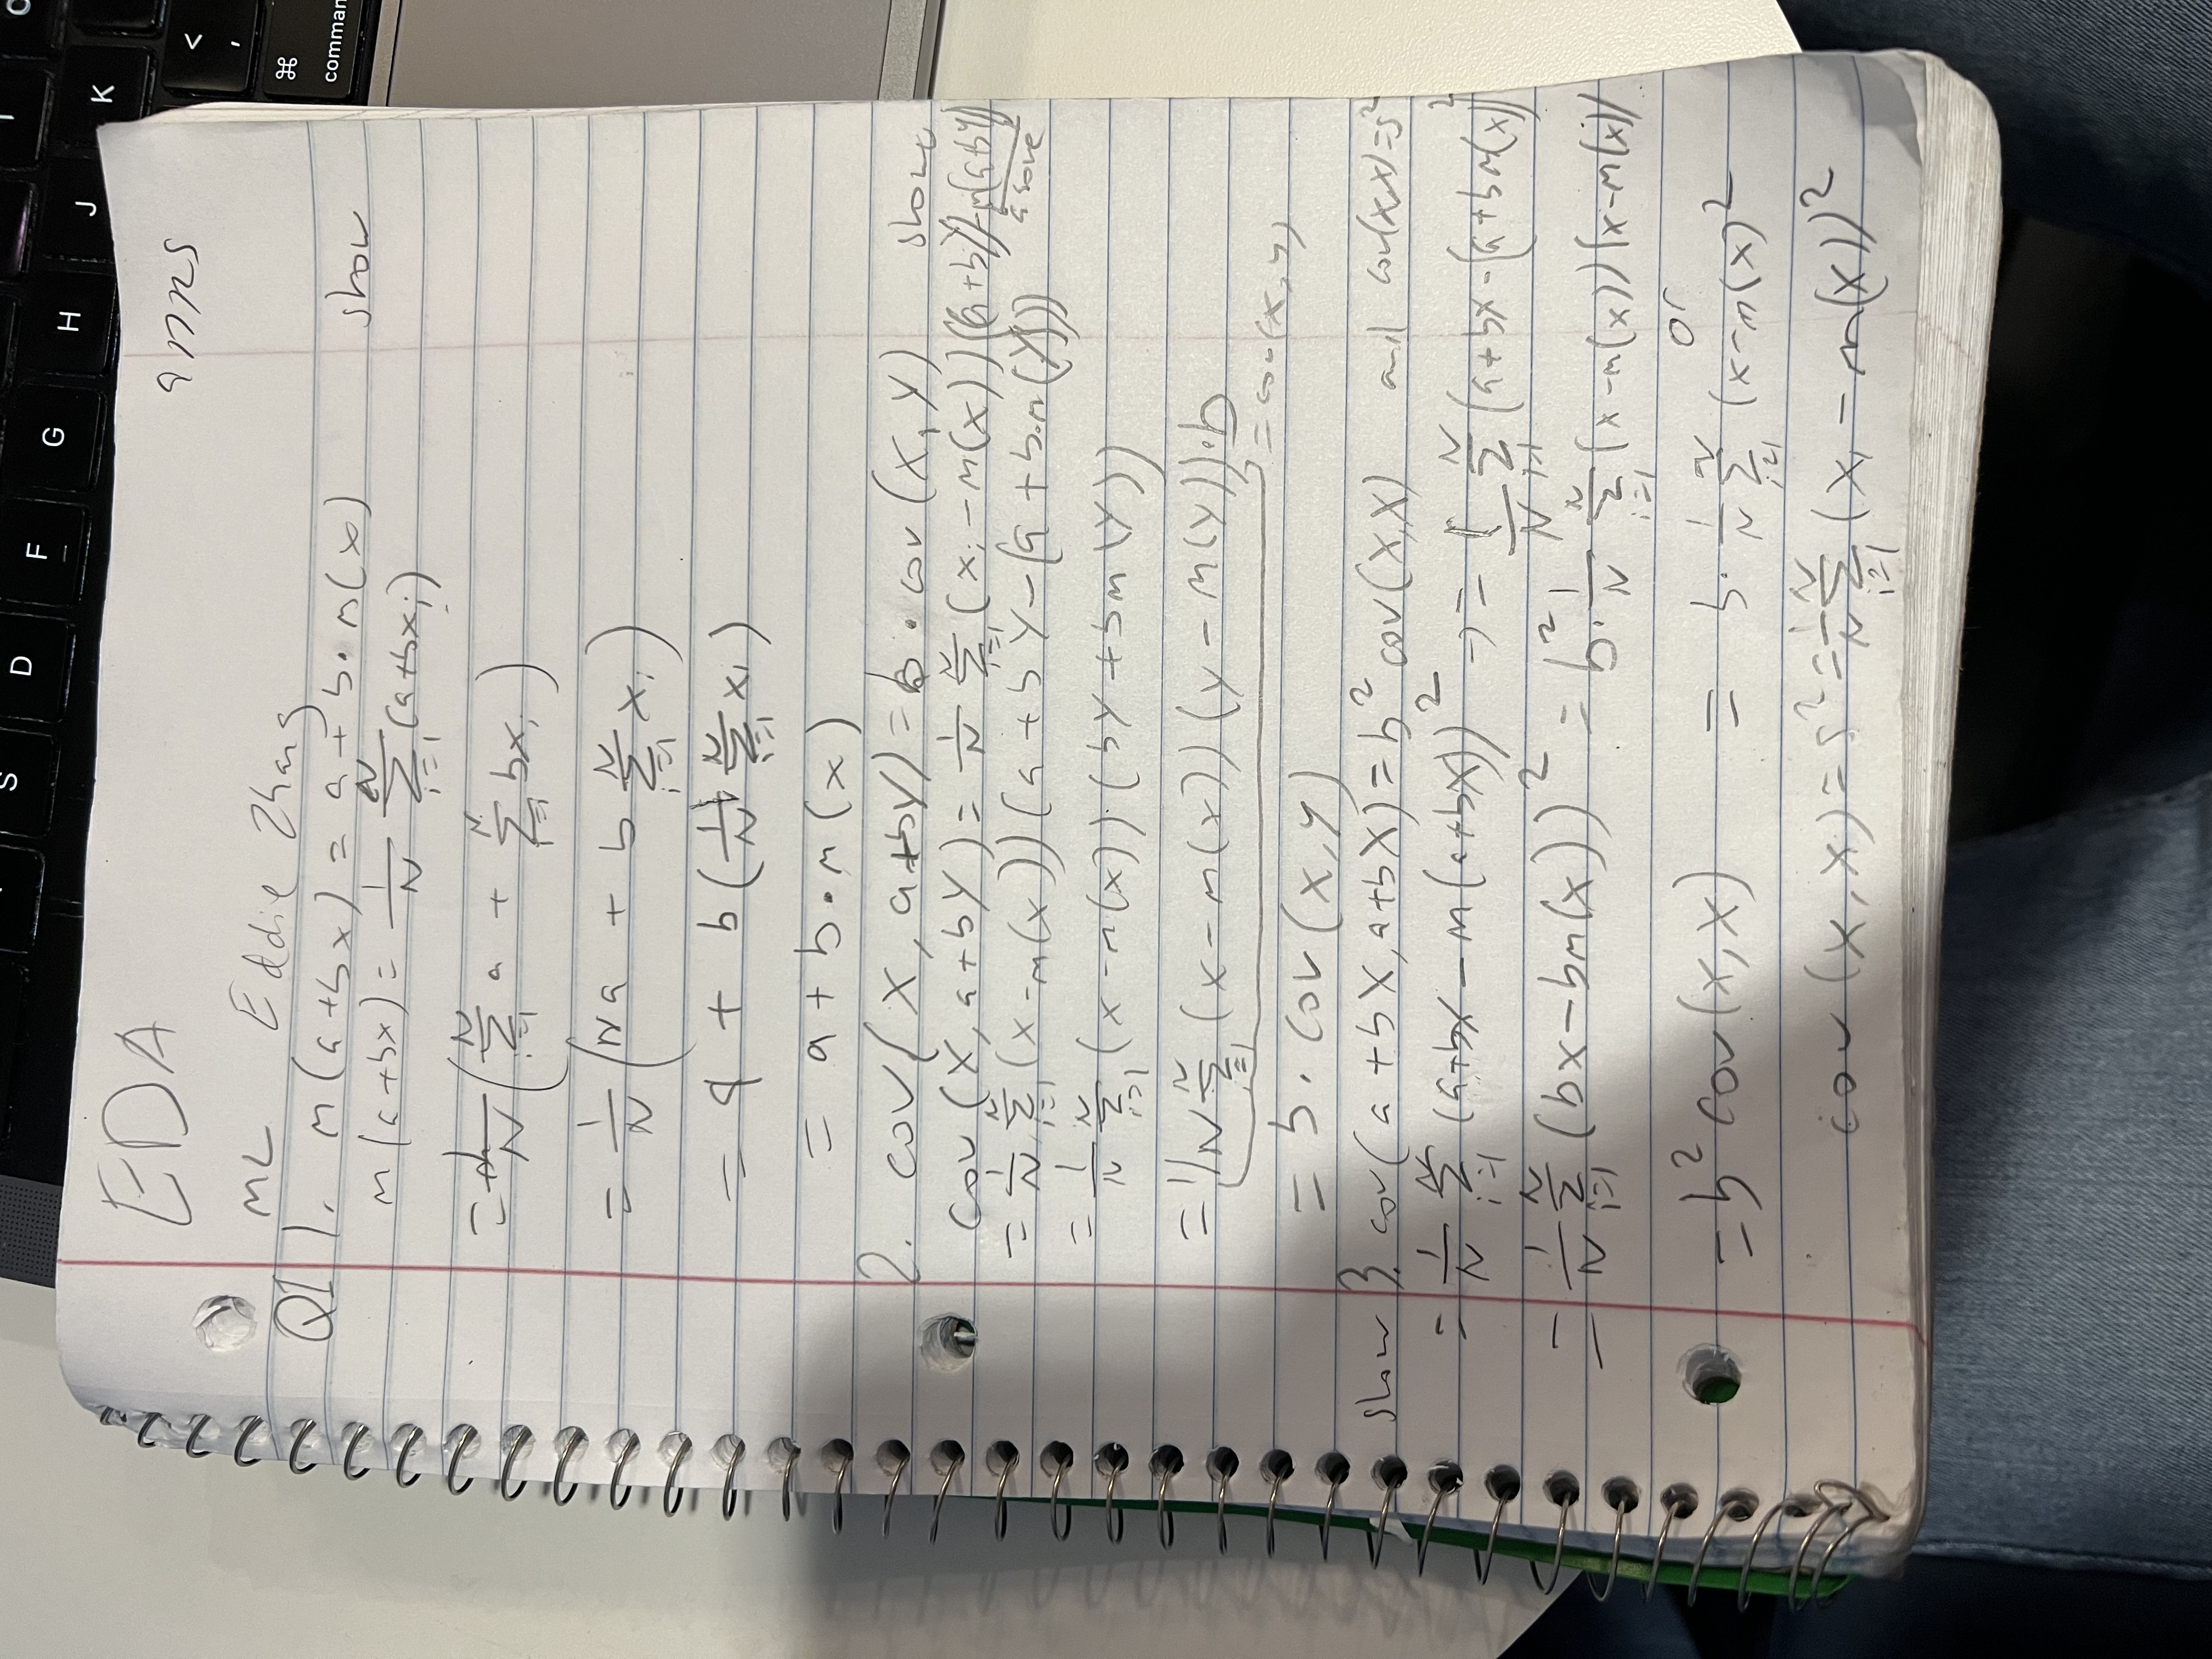 S D F G H J K
< ,
⌘
comman
EDA
ML Eddie Zhang
Q1 1. m(a+bx) = a + b·m(x) show
m(a+bx) = 1/N Σ_{i=1}^{N} (a+bx_i)
= 1/N (Σ_{i=1}^{N} a + Σ_{i=1}^{N} bx_i)
= 1/N (Na + b Σ_{i=1}^{N} x_i)
= a + b (1/N Σ_{i=1}^{N} x_i)
= a + b·m(x)
2. cov(X, a+bY) = b · cov(X, Y) show
cov(X, a+bY) = 1/N Σ_{i=1}^{N} (x_i − m(x))((a+bY) − m(a+bY))
above
= 1/N Σ_{i=1}^{N} (x − m(x))(a + bY − (a + b·m(Y)))
= 1/N Σ_{i=1}^{N} (x − m(x))·(bY + bm(Y))
= 1/N Σ_{i=1}^{N} (x − m(x))(y − m(y))·b
= cov(x,y)
= b · cov(x, y)
show 3. cov(a + bX, a+bX) = b² cov(X,X) and cov(X,X)=s²
= 1/N Σ_{i=1}^{N} (a+bx − m(a+bx))² → = 1/N Σ_{i=1}^{N} (a+bx − (a+bm(x))²
= 1/N Σ_{i=1}^{N} (bx − bm(x))² = b²· 1/N Σ_{i=1}^{N} (x − m(x))(x − m(x))
or
= b² cov(x, x) = b· 1/N Σ_{i=1}^{N} (x − m(x)²
cov(X, X) = s² = 1/N Σ_{i=1}^{N} (x_i − m(x))²